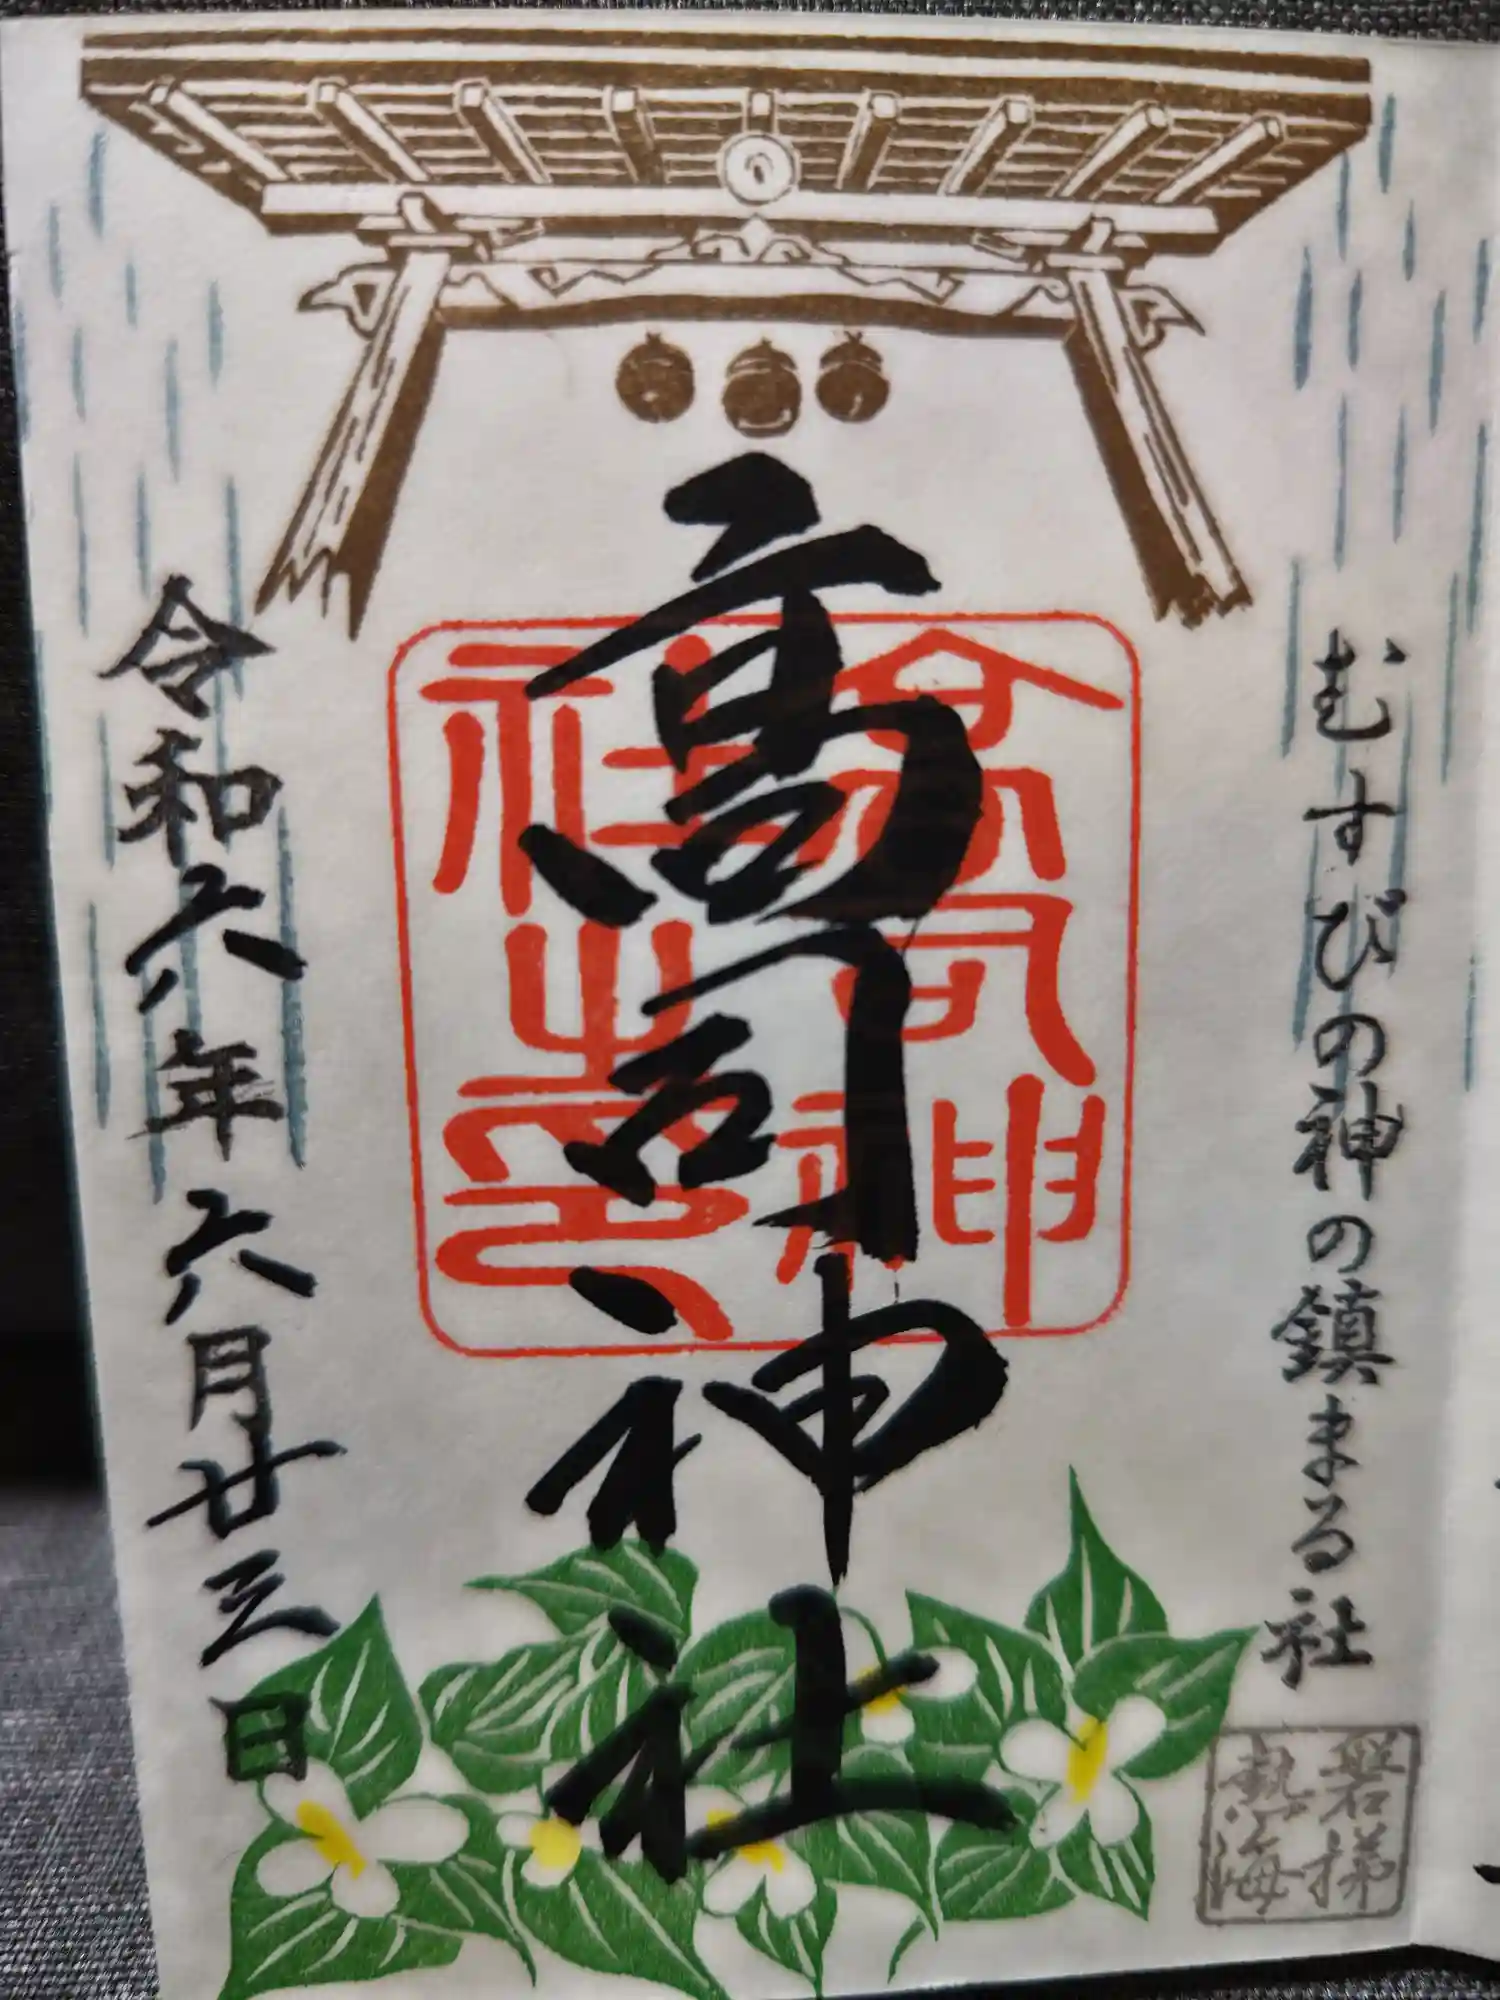 むすびの神の鎮まる社
磐梯
熱海
高司神社
高司神
社之印
令和六年六月廿三日